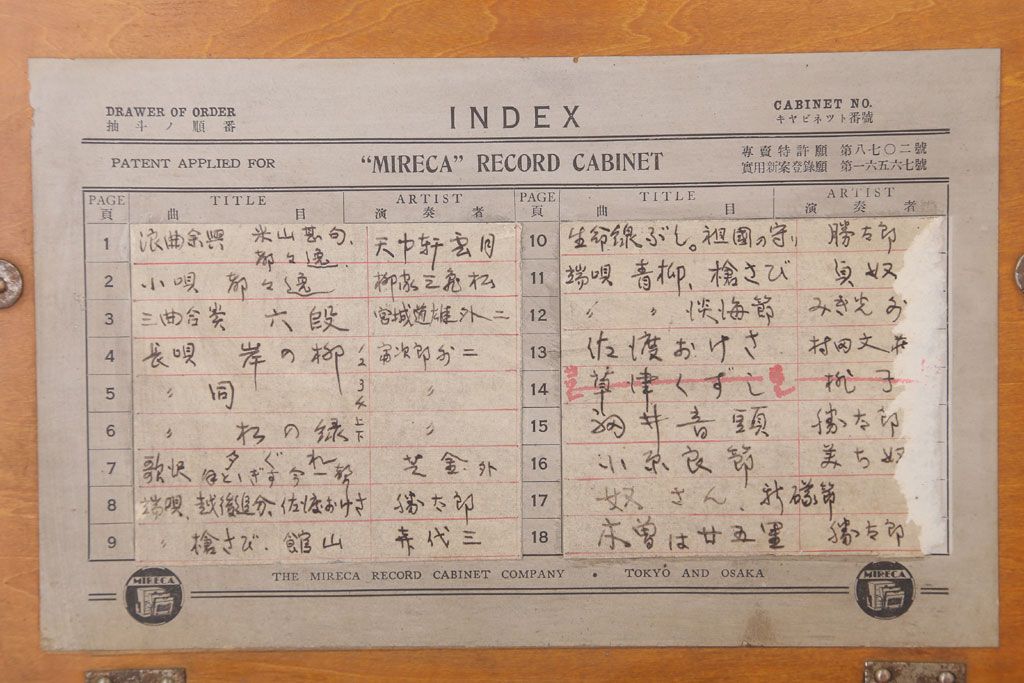 DRAWER OF ORDER
抽斗ノ順番
INDEX
CABINET NO.
キヤビネツト番號
PATENT APPLIED FOR
“MIRECA” RECORD CABINET
專賣特許願 第八七〇二號
實用新案登錄願 第一六五六七號
PAGE 頁 TITLE 曲目 ARTIST 演奏者
1 浪曲余興 米山甚句、都々逸、 天中軒雲月
2 小唄 都々逸 柳家三亀松
3 三曲合奏 六段 宮城道雄外二
4 長唄 岸の柳 1 2 3 4
5 〃 同 〃
6 〃 松の緑 上下 〃
7 歌沢 夕ぐれ ほととぎす 芝金 外
8 端唄、越後追分、佐渡おけさ 勝太郎
9 〃 槍さび、館山
PAGE 頁 TITLE 曲目 ARTIST 演奏者
10 生命線ぶし。祖國の守り 勝太郎
11 端唄 青柳、槍さび 貞奴
12 〃 〃 淡海節
13 佐渡おけさ 村田文
14 草津くずし 桃子
15 音頭 勝太郎
16 小原良節 美ち奴
17 奴さん、新磯節
18 木曽は廿五里 勝太郎
THE MIRECA RECORD CABINET COMPANY • TOKYO AND OSAKA
MIRECA
MIRECA